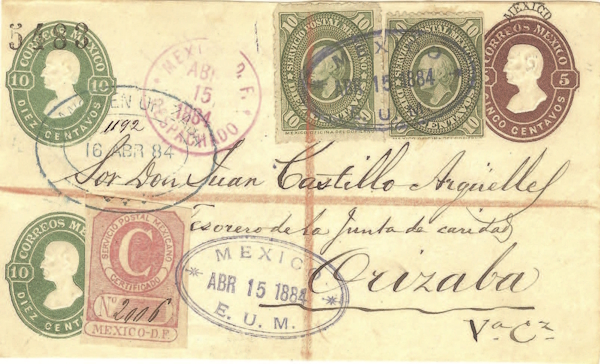 5488
CORREOS MEXICO
10 10
DIEZ CENTAVOS
MEXICO D. F.
ABR
15
1884
DESPACHADO
SERVICIO POSTAL MEXICANO
10 10
DIEZ CENTAVOS
SERVICIO POSTAL MEXICANO
10 10
DIEZ CENTAVOS
MEXICO
ABR 15 1884
E. U. M.
MEXICO
CORREOS MEXICO
5 5
CINCO CENTAVOS
1192
16 ABR 84
Sor Don Juan Castillo Argüelles
Tesorero de la Junta de caridad
Orizaba
Va Cz
CORREOS MEXICO
10
DIEZ CENTAVOS
SERVICIO POSTAL MEXICANO
C
CERTIFICADO
No 2006
MEXICO-D.F.
MEXICO
ABR 15 1884
E. U. M.